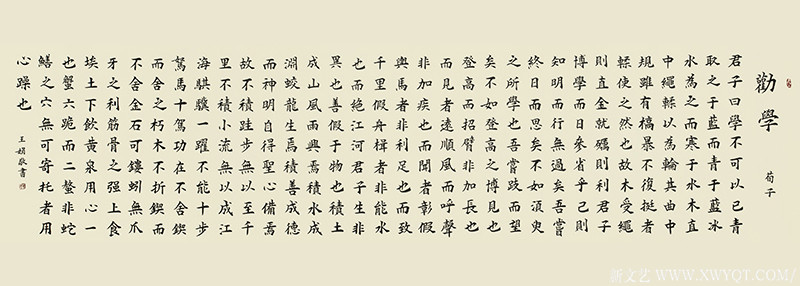 勸學
荀子
君子曰學不可以已青
取之于藍而青于藍冰
水為之而寒于水木直
中繩輮以為輪其曲中
規雖有槁暴不復挺者
輮使之然也故木受繩
則直金就礪則利君子
博學而日參省乎己則
知明而行無過矣吾嘗
終日而思矣不如須臾
之所學也吾嘗跂而望
矣不如登高之博見也
登高而招臂非加長也
而見者遠順風而呼聲
非加疾也而聞者彰假
輿馬者非利足也而致
千里假舟楫者非能水
也而絕江河君子生非
異也善假于物也積土
成山風雨興焉積水成
淵蛟龍生焉積善成德
而神明自得聖心備焉
故不積跬步無以至千
里不積小流無以成江
海騏驥一躍不能十步
駑馬十駕功在不舍鍥
而舍之朽木不折鍥而
不舍金石可鏤蚓無爪
牙之利筋骨之强上食
埃土下飲黃泉用心一
也蟹六跪而二螯非蛇
鱔之穴無可寄托者用
心躁也
王娟敬書
新文艺 WWW.XWYQT.COM